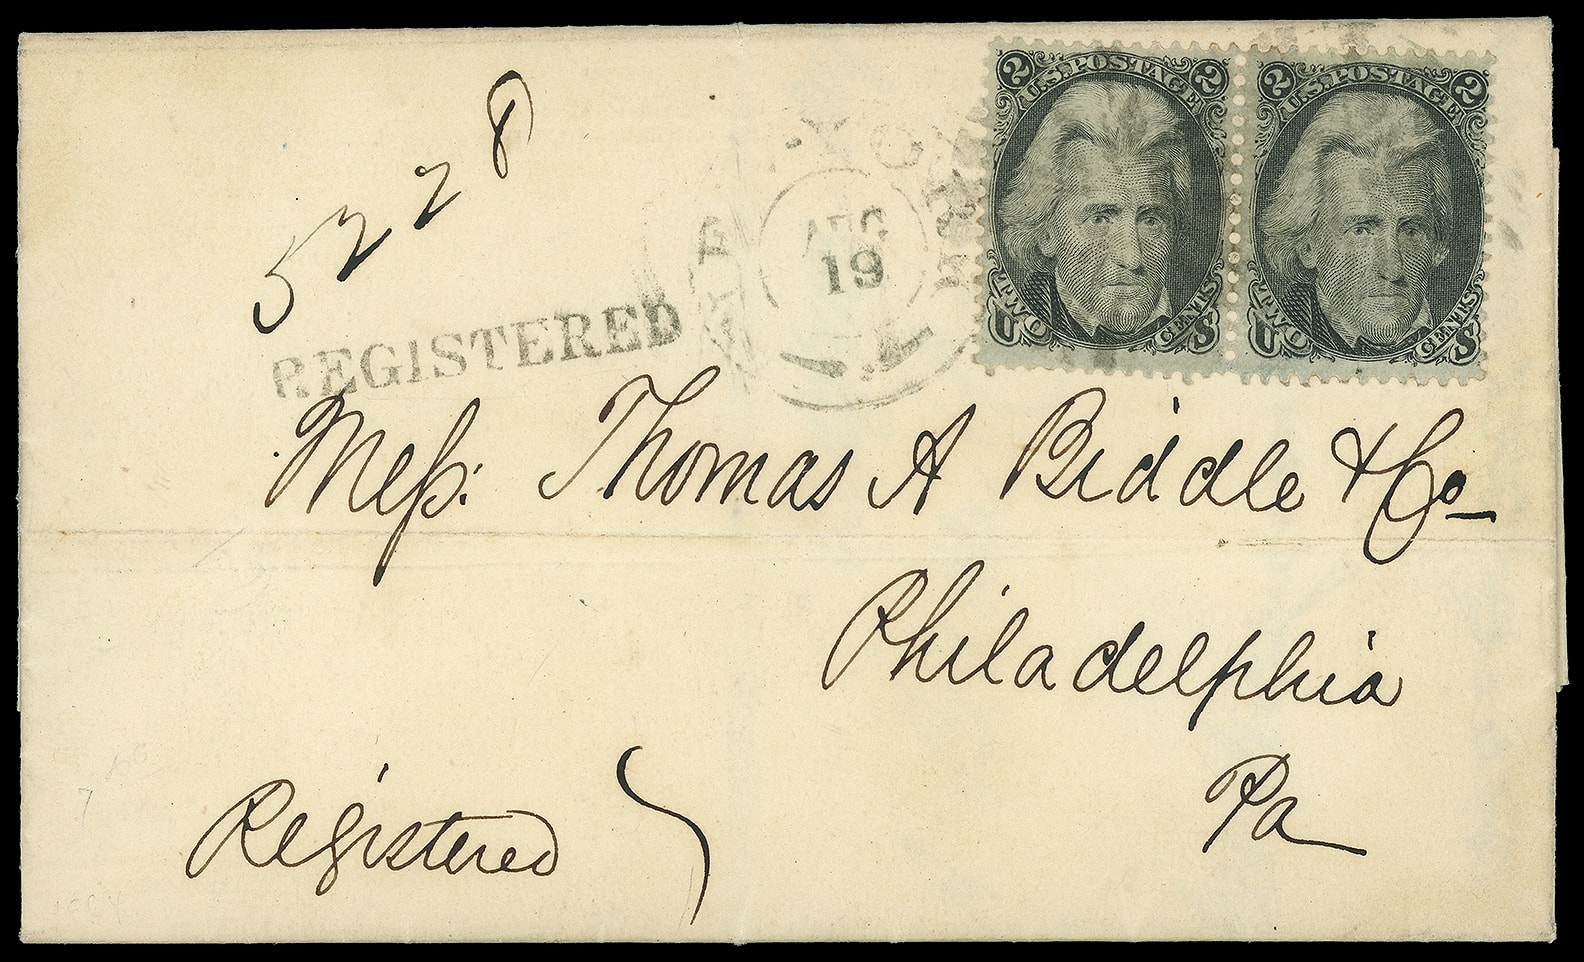 5228
2 U.S. POSTAGE 2
TWO CENTS
U S
2 U.S. POSTAGE 2
TWO CENTS
U S
AUG
19
REGISTERED
Meſs: Thomas A Biddle & Co
Philadelphia
Pa
Registered